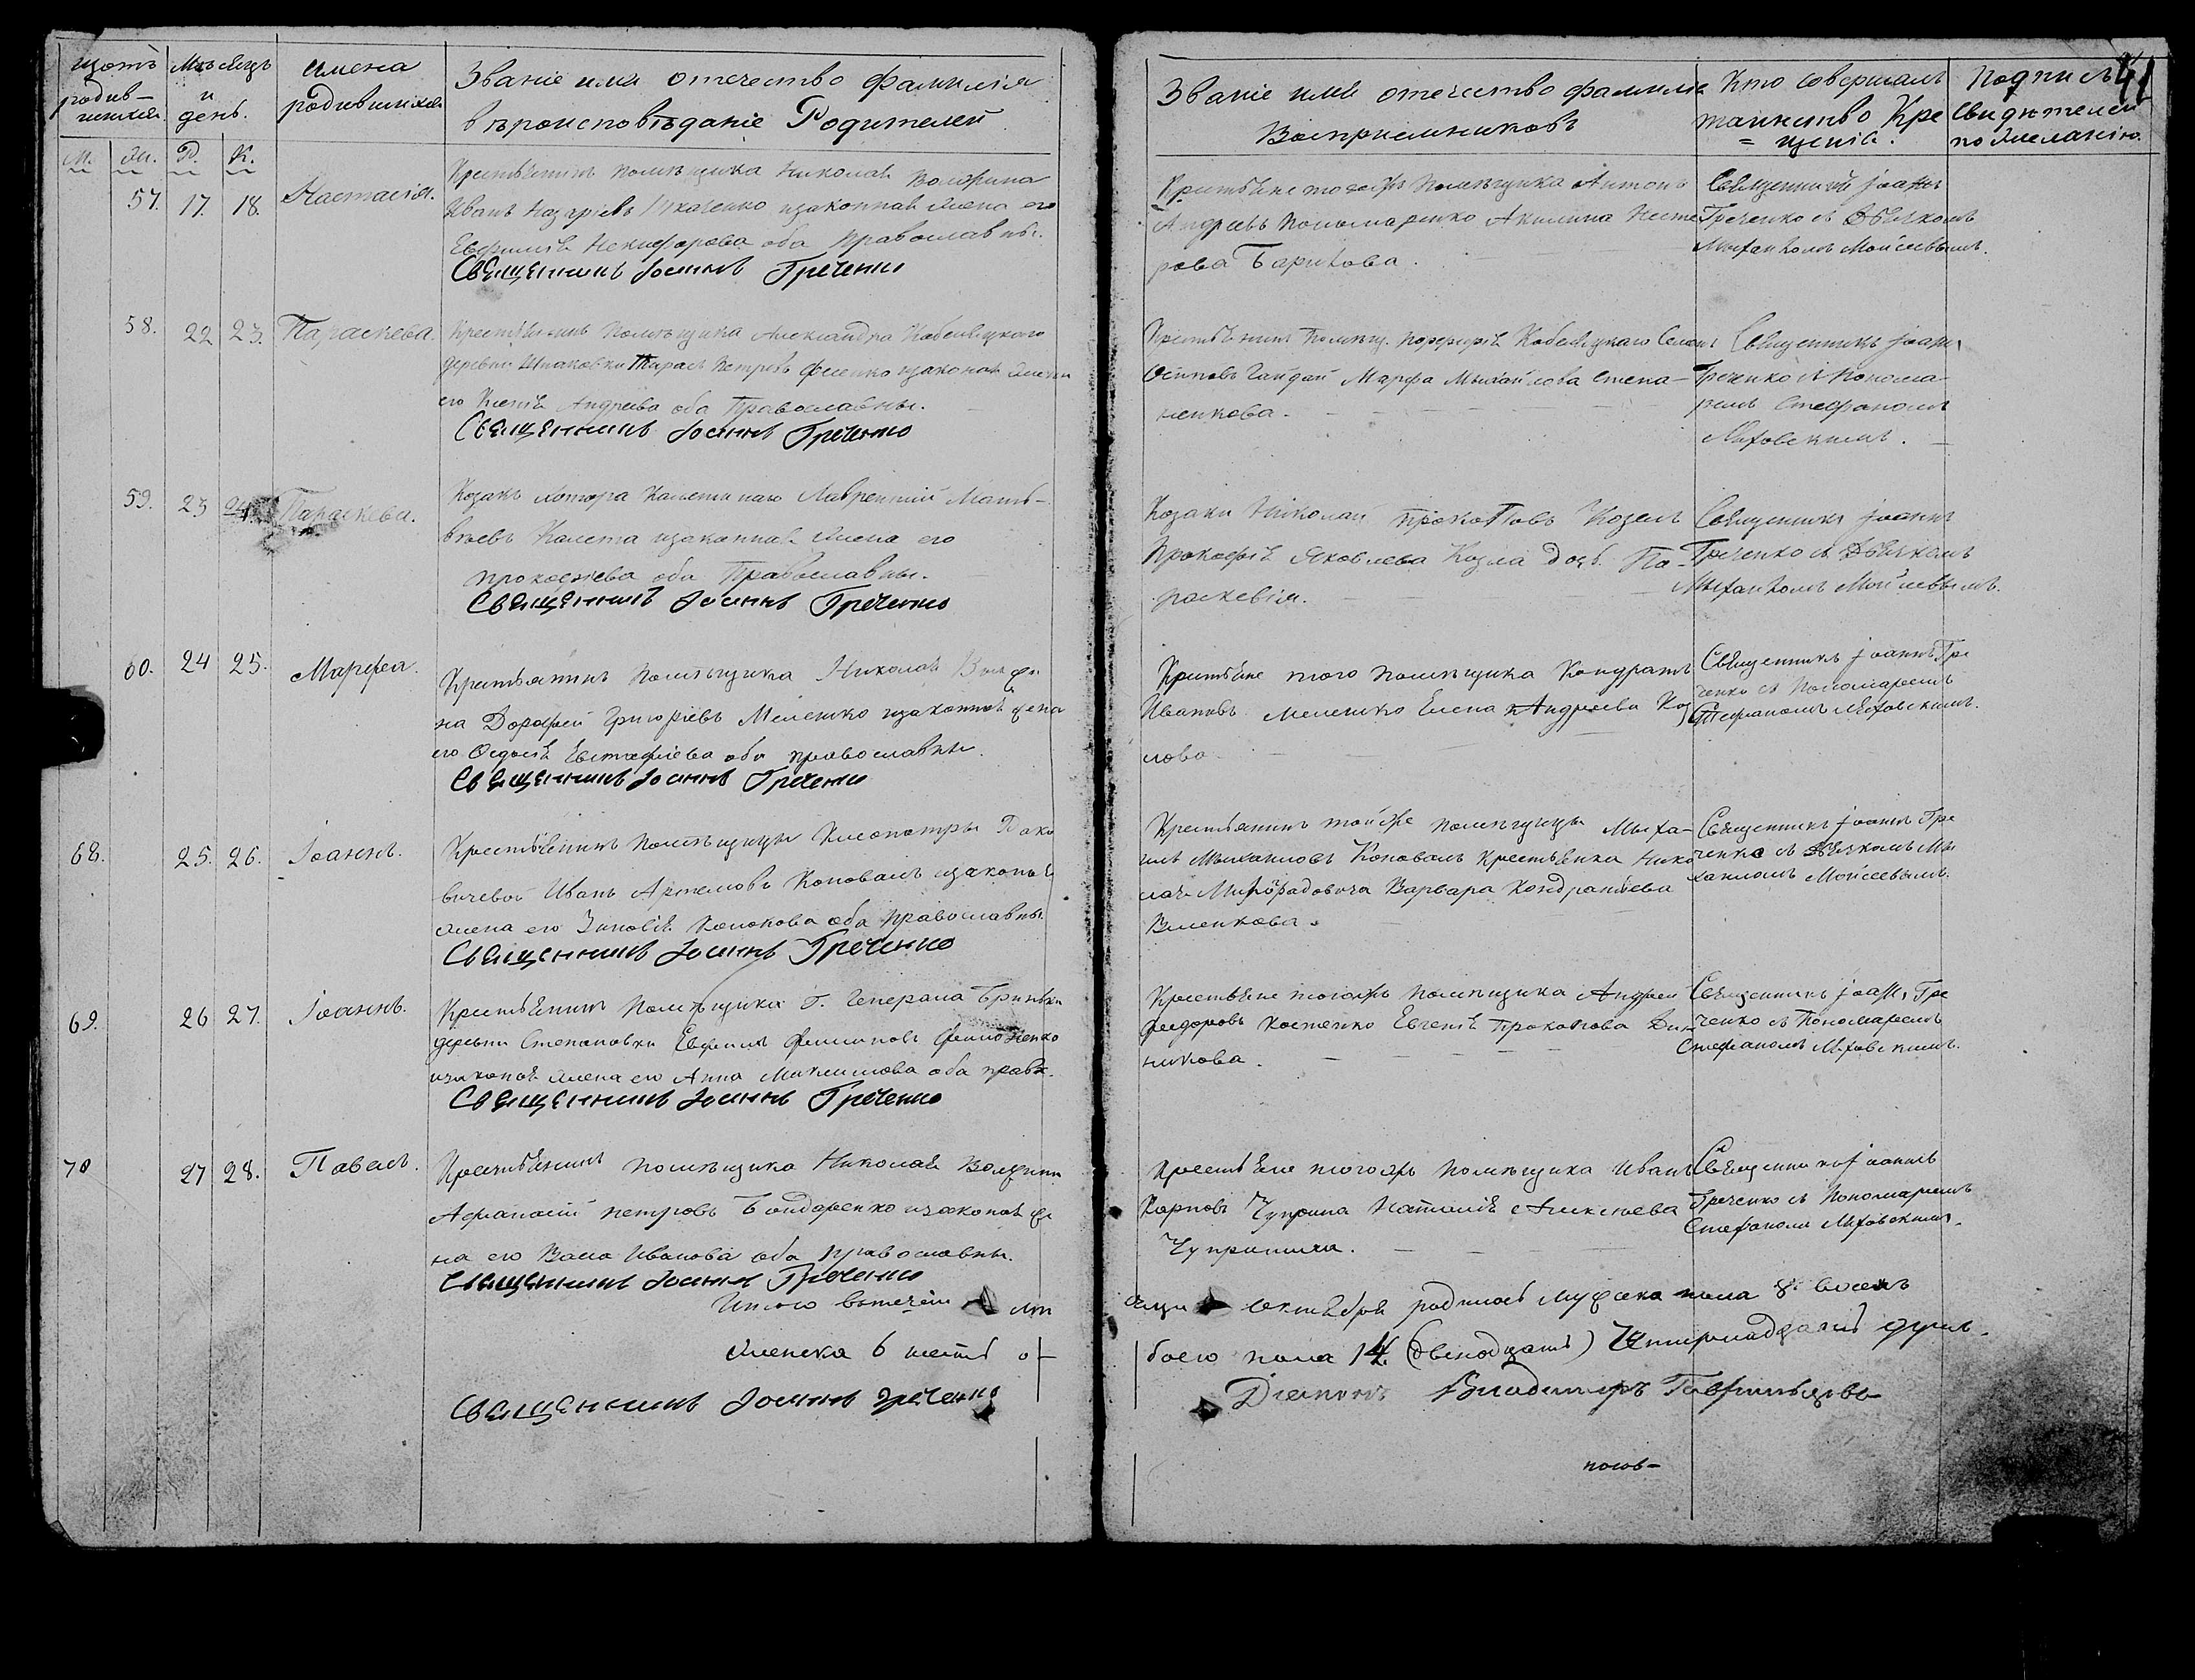 щотъ родив-шихся
Мѣсяцъ и день.
имена родившихся
Званіе имя отечество фамилія
вѣроисповѣданіе Родителей
М. Жи. Р. К.
57. 17. 18. Настасія.
Крестьянинъ помѣщика Николая Волжина
Иванъ Назаріевъ Ткаченко изаконная жена его
Евфимія Некифорова оба православны.
Священникъ Іоаннъ Греченко
58. 22 23. Параскева.
Крестьянинъ помѣщика Александра Кабенецкаго
деревни Шпаковки Тарасъ Петровъ Фесенко изаконая жена
его Ксенія Андреева оба Православны.
Священникъ Іоаннъ Греченко
59. 23 24. Параскева.
Козакъ хотора Лаврентій Матѣ-
вѣевъ Калета изаконная жена его
прокофіева оба Православны.
Священникъ Іоаннъ Греченко
60. 24 25. Марфа.
Крестьянинъ помѣщика Николая Волжи
на Дорофей Григоріевъ Мелешко изаконная жена
его Федосія Евстафіева оба православны.
Священникъ Іоаннъ Греченко
68. 25. 26. Іоаннъ.
Крестьянинъ помѣщицы Клеопатры
вичевой Иванъ Артемовъ Коновалъ изаконая
жена его Зиновія оба православны.
Священникъ Іоаннъ Греченко
69. 26 27. Іоаннъ.
Крестьянинъ помѣщика Г. Генерала
деревни Степановки Ефимъ Филиповъ
изаконая жена его Анна Максимова оба правос.
Священникъ Іоаннъ Греченко
70 27 28. Павелъ.
Крестьянинъ помѣщика Николая Волжина
Афанасій петровъ Бондаренко изаконая же
на его Васа Иванова оба православны.
Священникъ Іоаннъ Греченко
Итого втечени
женска 6 шесть о
Священникъ Іоаннъ Греченко
41
Званіе имя отечество фамилія
Воспріемниковъ
Кто совершалъ
таинство Кре
= щенія.
Подпись
Свидѣтелей
по желанію.
Крестьяне тогожъ помѣщика Антонъ
Андреевъ Пономаренко Акилина Несте
рова Барикова.
Священникъ Іоаннъ
Греченко съ Дьячкомъ
Михаиломъ Моисеевымъ.
Крестьянинъ Помѣщ. Порфирія Кабенецкаго Семенъ
Осиповъ Гайдай Марфа Михайлова Степа-
ненкова.
Священникъ Іоаннъ
Греченко съ Понома-
ремъ Стефаномъ
Маховскимъ.
Козаки Николай прокоповъ Козелъ
Прокофія Яковлева Козла дочь Па-
раскевія.
Священникъ Іоаннъ
Греченко съ Дьячкомъ
Михаиломъ Моисеевымъ.
Крестьяне того помѣщика Кондратъ
Ивановъ Мелешко Елена Андреева Коз
лова
Священникъ Іоаннъ Гре
ченко съ Пономаремъ
Стефаномъ Маховскимъ.
Крестьянинъ тойже помѣщицы Миха-
илъ Михаиловъ Коновалъ крестьянка Нико
лая Милорадовича Варвара Кондратьева
Священникъ Іоаннъ Гре
ченко съ Дьячкомъ Ми
хаиломъ Моисеевымъ.
Крестьяне тогожъ помѣщика Андрей
Федоровъ Костенко Евгенія Прокопова
никова.
Священникъ Іоаннъ Гре
ченко съ Пономаремъ
Стефаномъ Маховскимъ.
Крестьяне тогожъ помѣщика Иванъ
Карповъ Чуприна Наталія Алексѣева
Чуприниха.
Священникъ Іоаннъ
Греченко съ Пономаремъ
Стефаномъ Маховскимъ.
Октября родилось мужска пола 8. восемъ
боего пола 14. Четырнадцать душъ.
Діаконъ Владимиръ